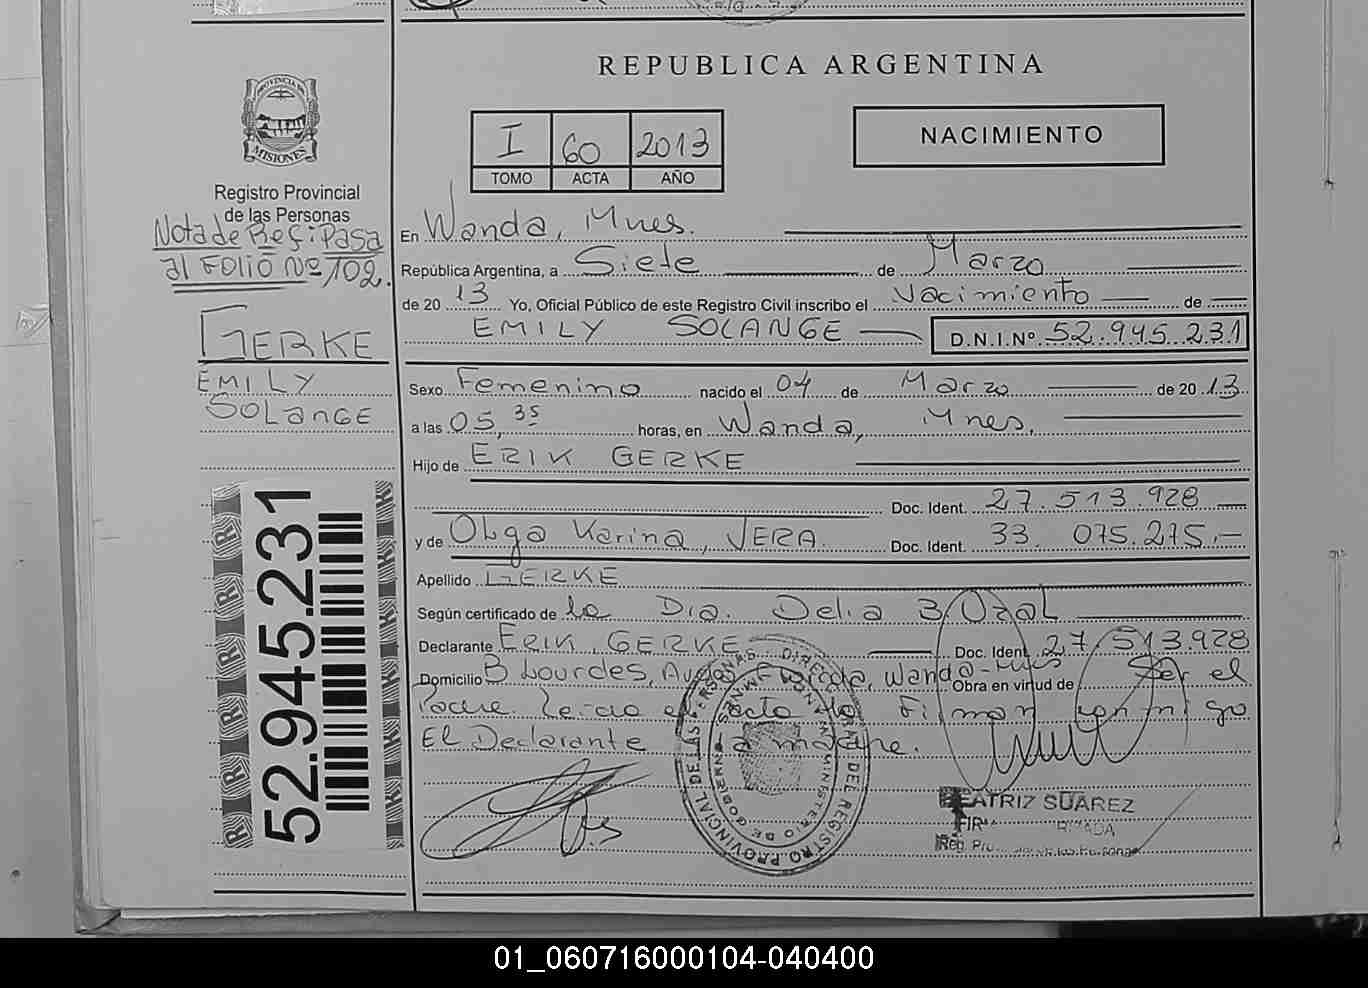 REPUBLICA ARGENTINA
PROVINCIA DE
MISIONES
Registro Provincial
de las Personas
Nota de Ref: Pasa
al FOLIO Nº 102.
GERKE
EMILY
SOLANGE
52.945.231
I 60 2013
TOMO ACTA AÑO
NACIMIENTO
En Wanda, Mnes.
República Argentina, a Siete de Marzo
de 20 13 Yo, Oficial Público de este Registro Civil inscribo el Nacimiento de
EMILY SOLANGE D.N.I.Nº 52.945.231
Sexo Femenino nacido el 04 de Marzo de 20 13
a las 05,35 horas, en Wanda, Mnes.
Hijo de ERIK GERKE
Doc. Ident. 27.513.928
y de Olga Karina, VERA Doc. Ident. 33.075.215.-
Apellido GERKE
Según certificado de la Dra. Delia B Uzal
Declarante ERIK, GERKE Doc. Ident. 27.513.928
Domicilio B Lourdes, Wanda-Mnes Obra en virtud de Ser el
Padre. Leido el Acta la Firman conmigo
El Declarante madre.
BEATRIZ SUAREZ
Reg.
01_060716000104-040400